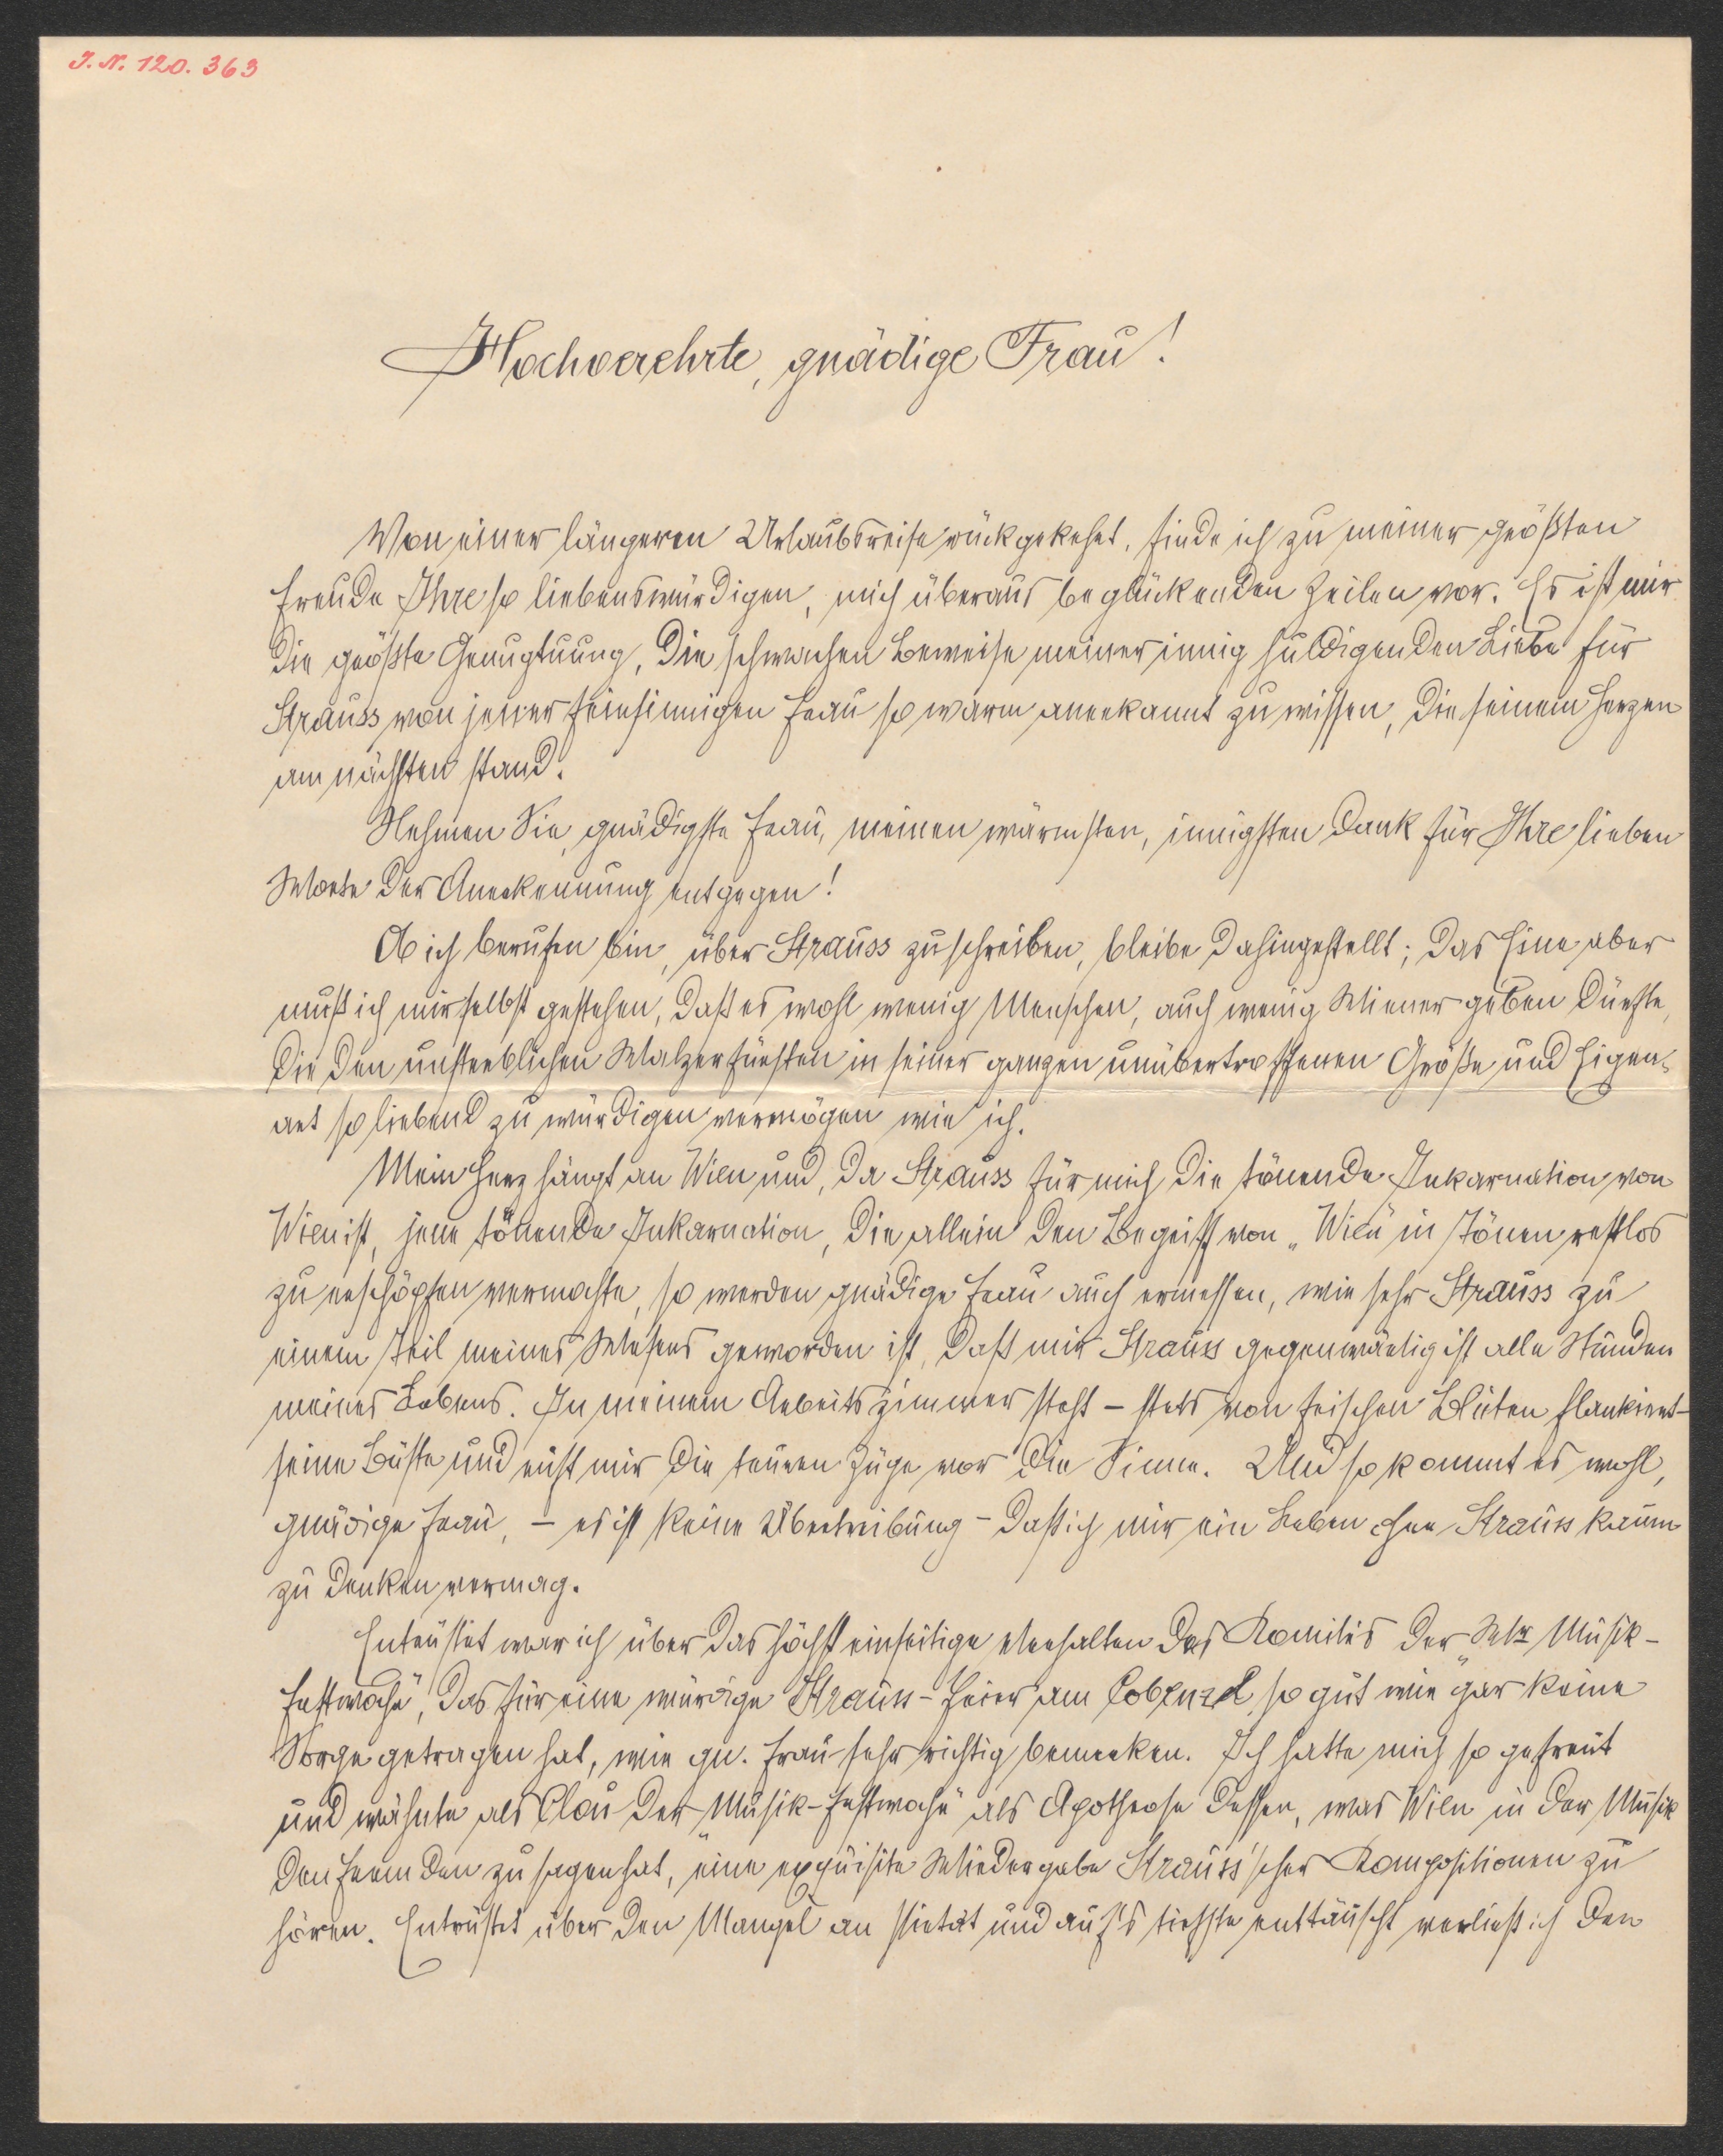 I. N. 120.363
Hochverehrte, gnädige Frau!
Von einer längeren Urlaubsreise rückgekehrt, finde ich zu meiner größten
Freude Ihre so liebenswürdigen, mich überaus beglückenden Zeilen vor. Es ist mir
die größte Genugtuung, die schwachen Beweise meiner innig huldigenden Liebe für
Strauss von jener feinsinnigen Frau so warm anerkannt zu wissen, die seinem Herzen
am nächsten stand.
Nehmen Sie, gnädigste Frau, meinen wärmsten, innigsten Dank für Ihre lieben
Worte der Anerkennung entgegen!
Ob ich berufen bin, über Strauss zu schreiben, bleibe dahingestellt; das Eine aber
muß ich mir selbst gestehen, daß es wohl wenig Menschen, auch wenig Wiener geben dürfte,
die den unsterblichen Walzerfürsten in seiner ganzen unübertroffenen Größe und Eigen-
art so liebend zu würdigen vermögen wie ich.
Mein Herz hängt an Wien und, da Strauss für mich die tönende Inkarnation von
Wien ist, jene tönende Inkarnation, die allein den Begriff von „Wien" in Tönen restlos
zu erschöpfen vermochte, so werden gnädige Frau auch ermessen, wie sehr Strauss zu
einem Teil meines Wesens geworden ist, daß mir Strauss gegenwärtig ist alle Stunden
meines Lebens. In meinem Arbeitszimmer steht – stets von frischen Blüten flankiert –
seine Büste und ruft mir die teuren Züge vor die Sinne. Und so kommt es wohl,
gnädige Frau, – es ist keine Übertreibung – daß ich mir ein Leben ohne Strauss kaum
zu denken vermag.
Entrüstet war ich über das höchst einseitige Verhalten des Komités der „Wr Musik-
festwoche", das für eine würdige Strauss-Feier am Cobenzl so gut wie gar keine
Sorge getragen hat, wie gn. Frau sehr richtig bemerken. Ich hatte mich so gefreut
und wähnte als Clou der „Musik-Festwoche" als Apotheose dessen, was Wien in der Musik
den Fremden zu sagen hat, eine exquisite Wiedergabe Strauss'scher Kompositionen zu
hören. Entrüstet über den Mangel an Pietät und auf's tiefste enttäuscht verließ ich den